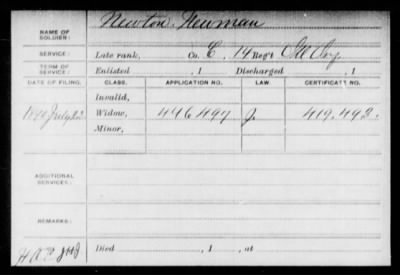 NAME OF SOLDIER: Newton Newman
SERVICE: Late rank, Co. E, 14 Reg't
TERM OF SERVICE: Enlisted , 1 Discharged , 1
DATE OF FILING. CLASS. APPLICATION NO. LAW. CERTIFICATE NO.
Invalid,
1890 July 22 Widow, 446.497 J. 419.492.
Minor,
ADDITIONAL SERVICES:
REMARKS:
Died , 1 , at